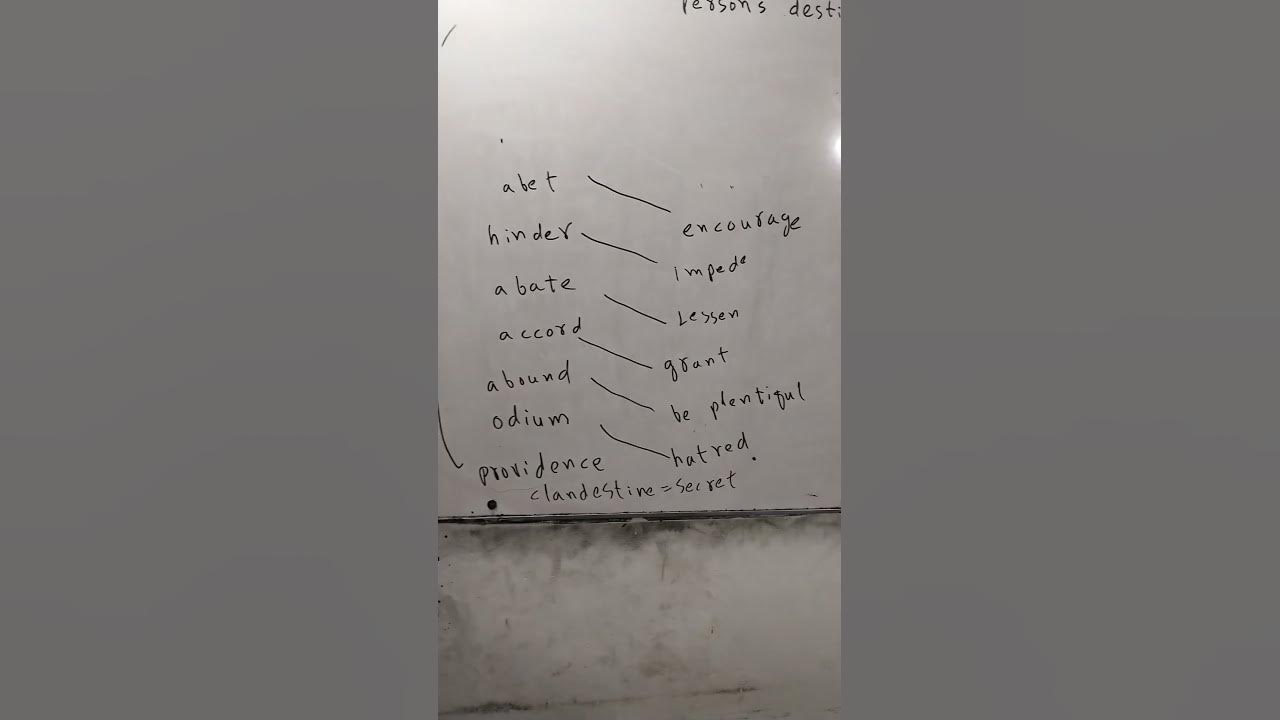 Person's desti
abet encourage
hinder impede
abate Lessen
accord grant
abound be plentiful
odium hatred.
providence
clandestine = secret